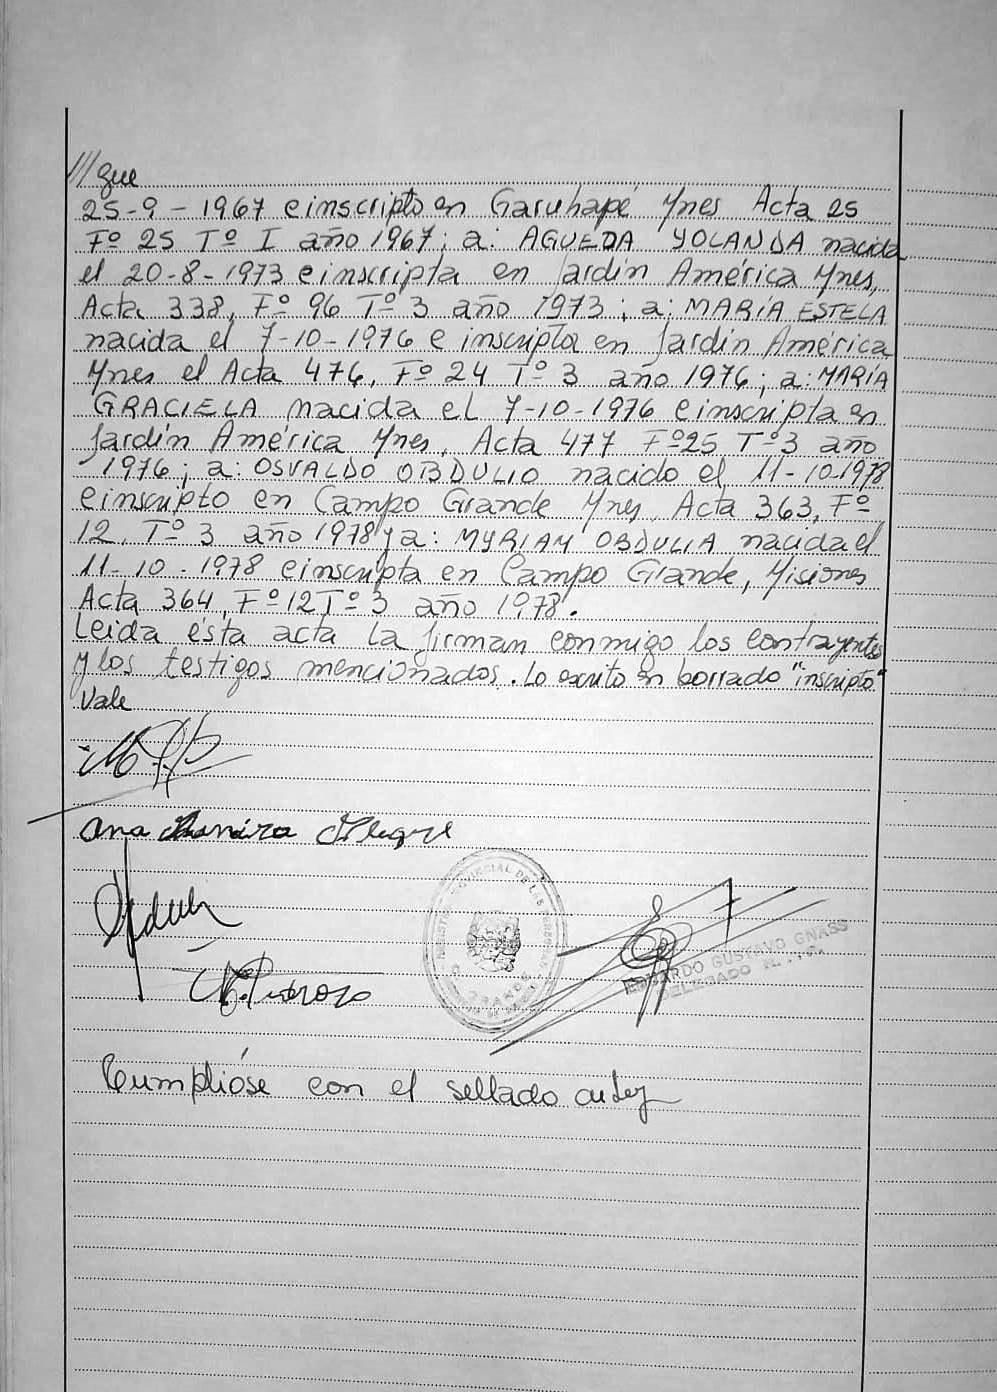 /// que
25-9-1967 e inscripto en Garuhapé Mnes Acta 25
Fº 25 Tº I año 1967; a: AGUEDA YOLANDA nacida
el 20-8-1973 e inscripta en Jardín América Mnes,
Acta 338, Fº 96 Tº 3 año 1973; a: MARIA ESTELA
nacida el 7-10-1976 e inscripta en Jardín América
Mnes el Acta 476, Fº 24 Tº 3 año 1976; a: MARIA
GRACIELA nacida el 7-10-1976 e inscripta en
Jardín América Mnes, Acta 477 Fº 25 Tº 3 año
1976; a: OSVALDO OBDULIO nacido el 11-10-1978
e inscripto en Campo Grande Mnes, Acta 363, Fº
12, Tº 3 año 1978 y a: MYRIAM OBDULIA nacida el
11-10-1978 e inscripta en Campo Grande, Misiones
Acta 364, Fº 12 Tº 3 año 1978.
Leida ésta acta la firman conmigo los contrayentes
y los testigos mencionados. Lo escrito en borrado "inscripto"
Vale
Ana Ramira Alegre
Pedrozo
GRANDE
EDUARDO GUSTAVO GNASS
DELEGADO
Cumplióse con el sellado de ley